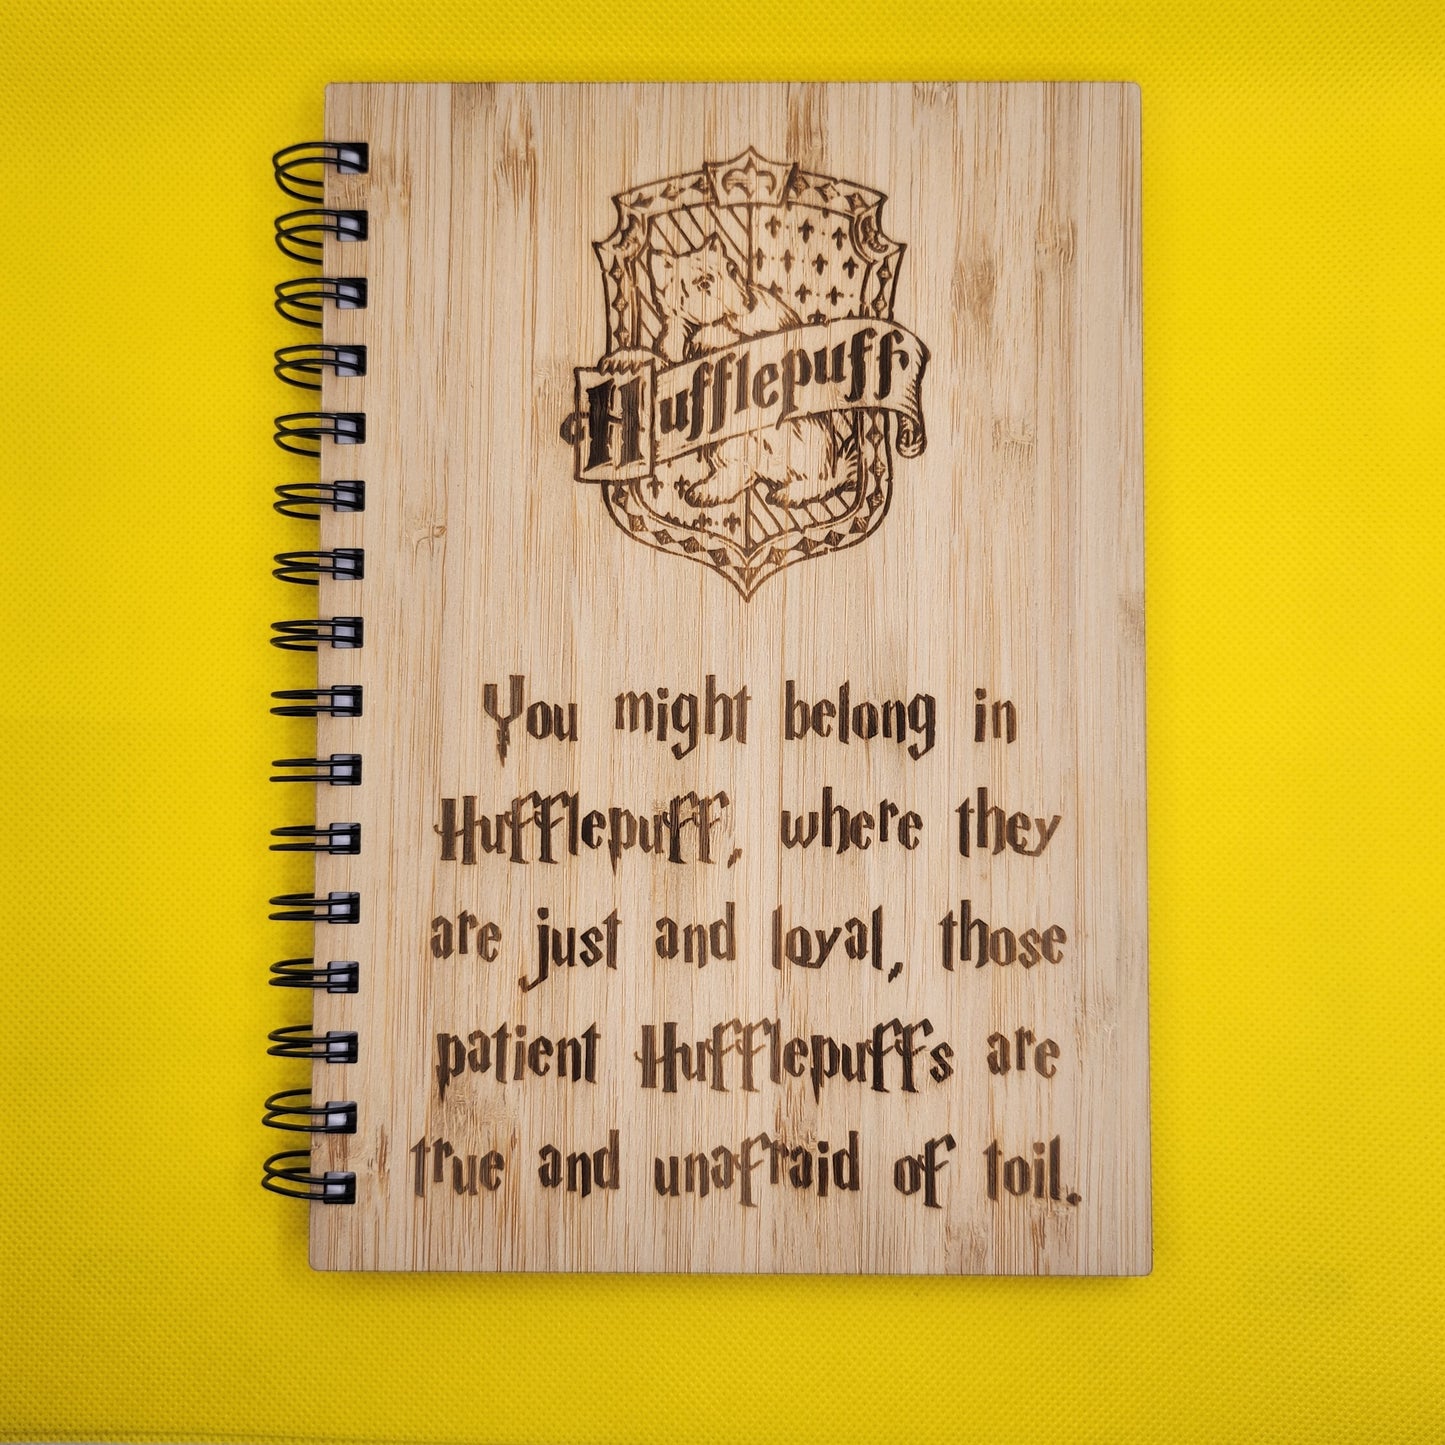 Hufflepuff
You might belong in
Hufflepuff, where they
are just and loyal, those
patient Hufflepuffs are
true and unafraid of toil.